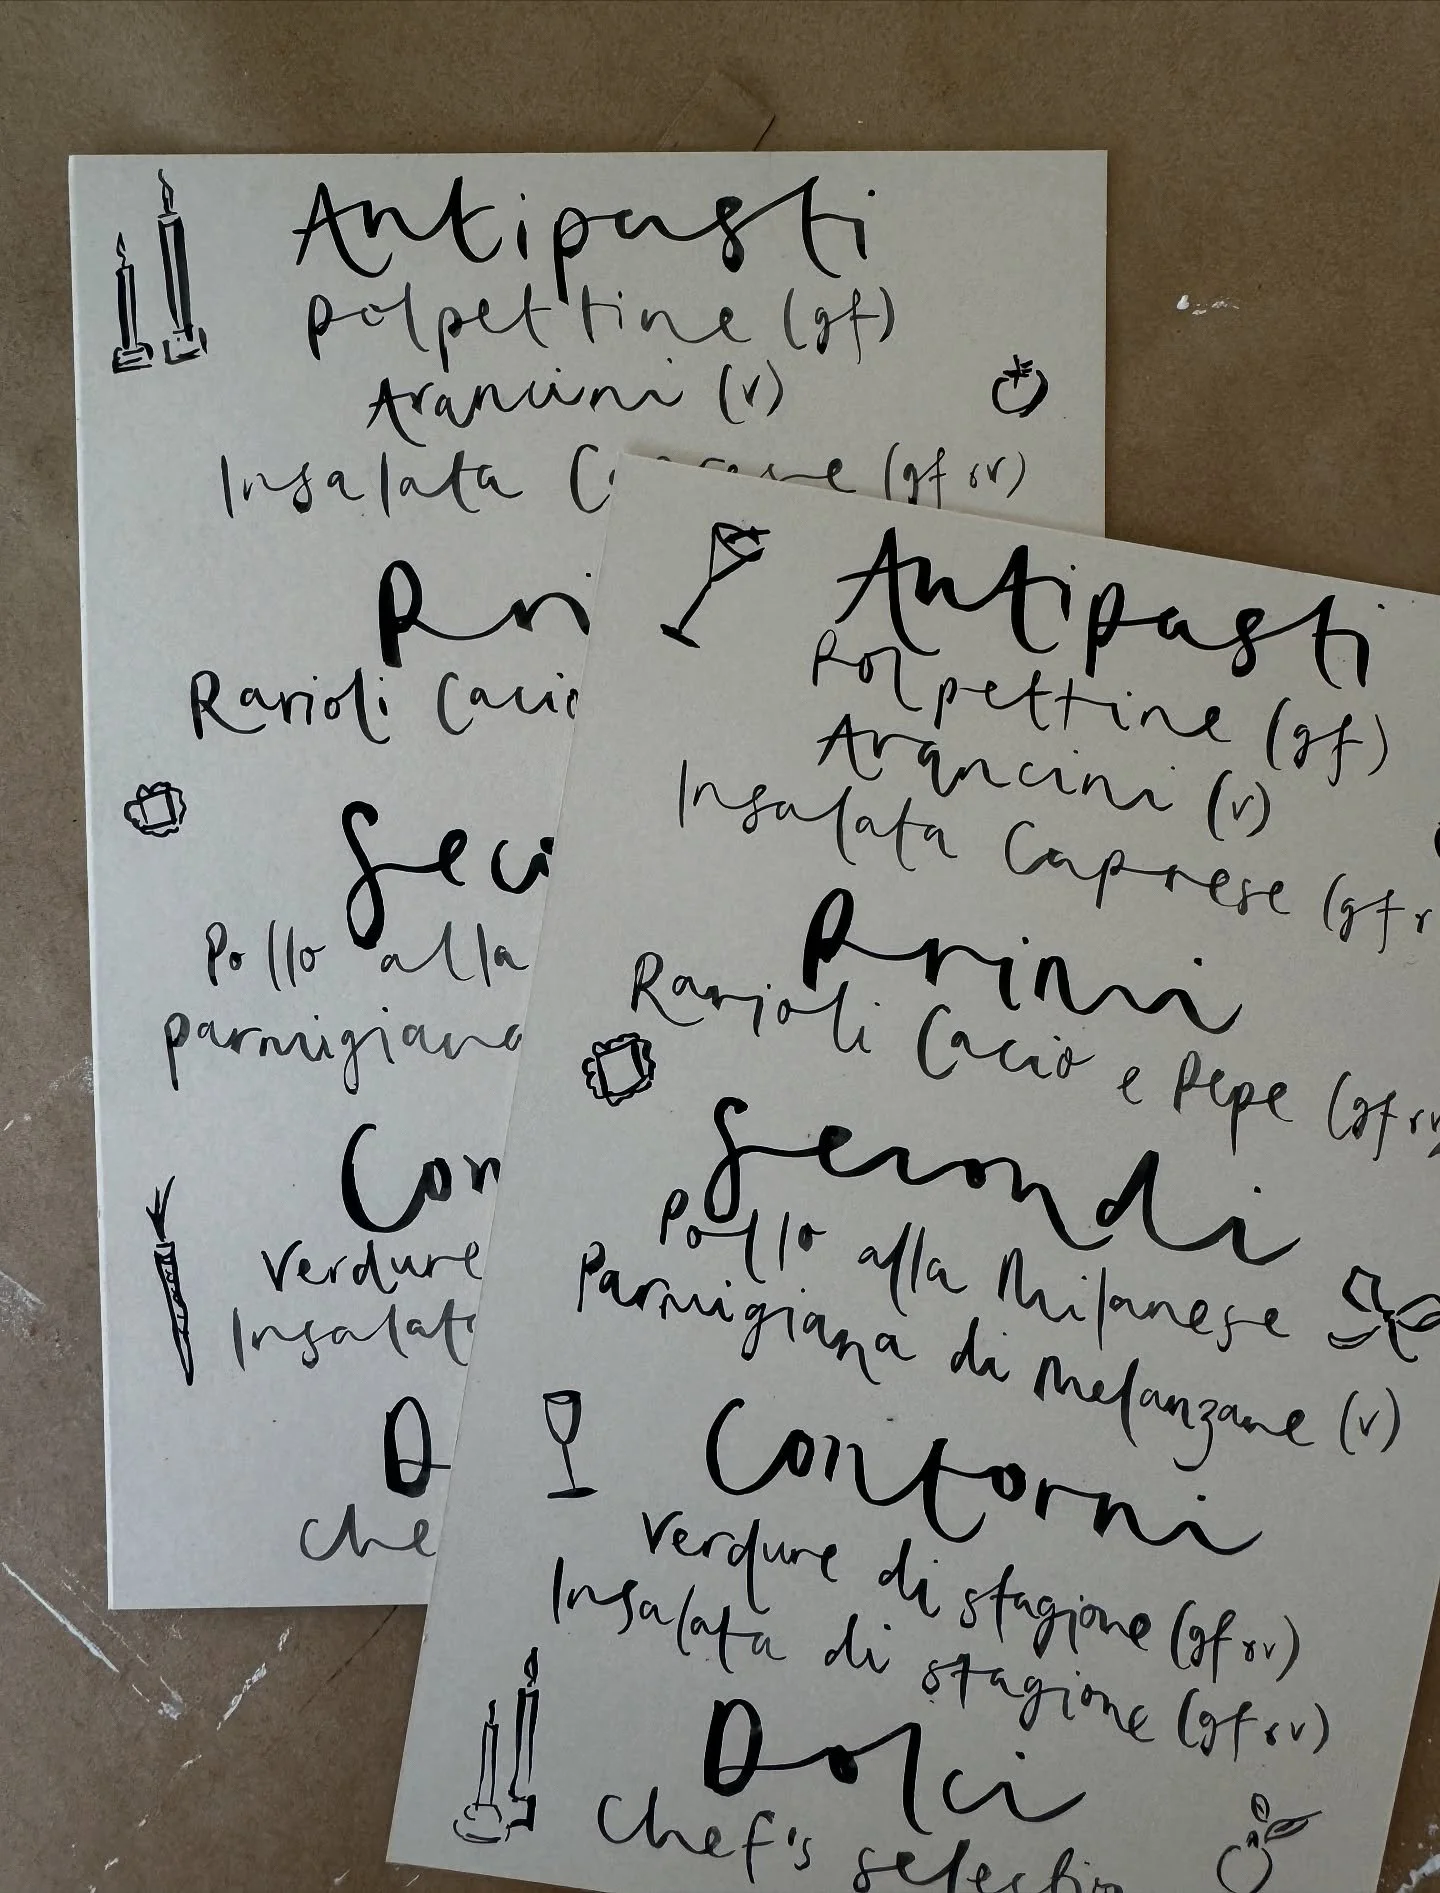 Antipasti
Polpettine (gf)
Arancini (v)
Insalata Caprese (gf & v)
Pri
Ravioli Cacio
Seco
Pollo alla
parmigiana
Con
Verdure
Insalata
D
Che
Antipasti
Polpettine (gf)
Arancini (v)
Insalata Caprese (gf &
Primi
Ravioli Cacio e Pepe (gf & v)
Secondi
Pollo alla Milanese
Parmigiana di Melanzane (v)
Contorni
Verdure di stagione (gf & v)
Insalata di stagione (gf & v)
Dolci
Chef's selection